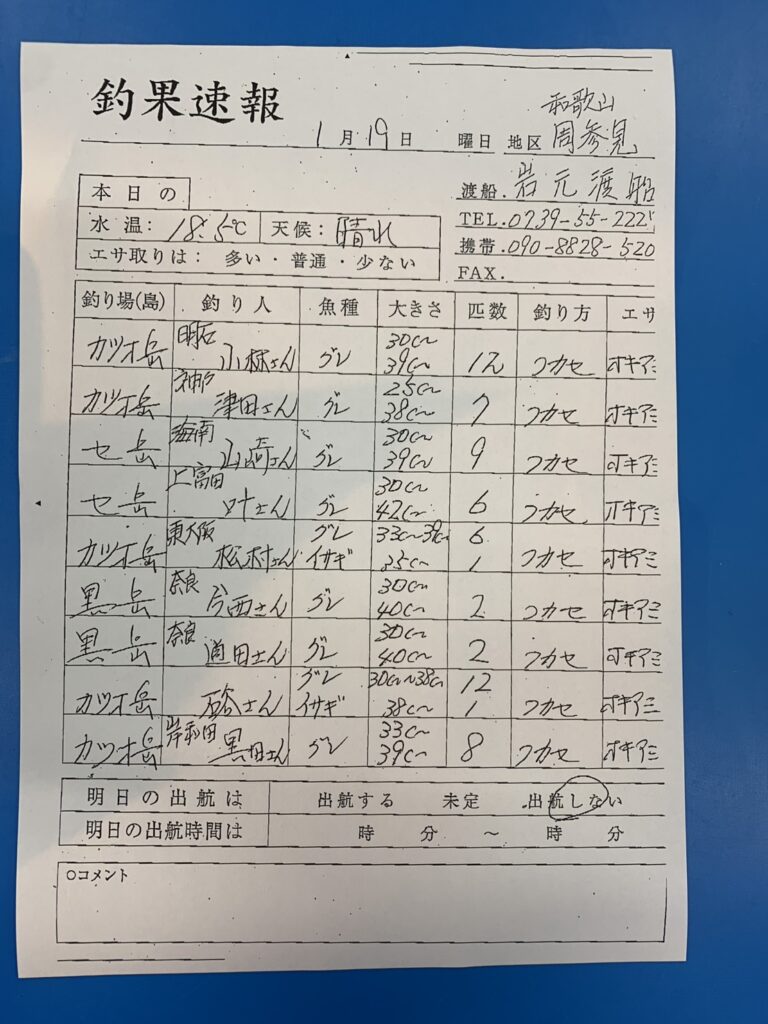 釣果速報
和歌山
1月19日 曜日 地区 周参見
渡船. 岩元渡船
本日の
水温: 18.5℃ 天候: 晴れ
TEL. 0739-55-222
携帯. 090-8828-520
エサ取りは: 多い・普通・少ない
FAX.
釣り場(島) 釣り人 魚種 大きさ 匹数 釣り方 エサ
明石 30㎝
カツオ岳 小林さん グレ 39㎝ 12 フカセ オキアミ
神戸 25㎝
カツオ岳 津田さん グレ 38㎝ 7 フカセ オキアミ
海南 30㎝
セ岳 山崎さん グレ 39㎝ 9 フカセ オキアミ
上富田 30㎝
セ岳 叶さん グレ 42㎝ 6 フカセ オキアミ
東大阪 グレ 33㎝~39㎝ 6
カツオ岳 松村さん イサギ 35㎝ 1 フカセ オキアミ
奈良 30㎝
黒岳 今西さん グレ 40㎝ 2 フカセ オキアミ
奈良 30㎝
黒岳 道田さん グレ 40㎝ 2 フカセ オキアミ
グレ 30㎝~38㎝ 12
カツオ岳 さん イサギ 38㎝ 1 フカセ オキアミ
岸和田 33㎝
カツオ岳 黒田さん グレ 39㎝ 8 フカセ オキアミ
明日の出航は 出航する 未定 出航しない
明日の出航時間は 時 分 ~ 時 分
○コメント